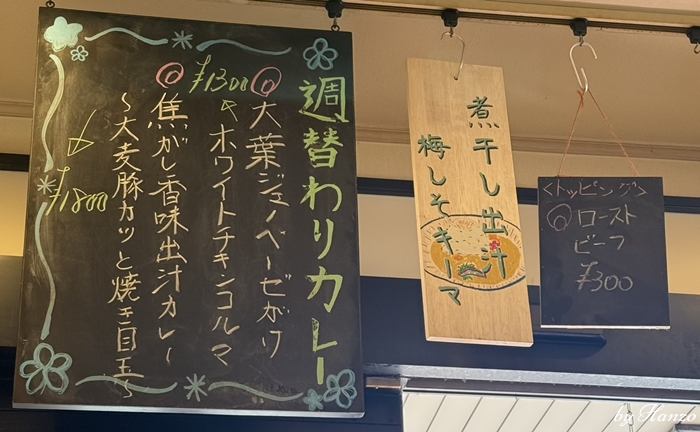 週替わりカレー
◎大葉ジェノベーゼがけ
ホワイトチキンコルマ
¥1300
◎焦がし香味出汁カレー
〜大麦豚カツと焼き目玉〜
¥1800
煮干し出汁
梅しそキーマ
<トッピング>
◎ロースト
ビーフ
¥300
by Hanzo